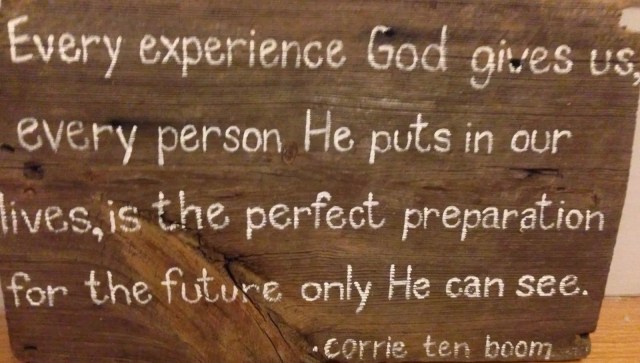 Every experience God gives us,
every person He puts in our
lives, is the perfect preparation
for the future only He can see.
·corrie ten boom